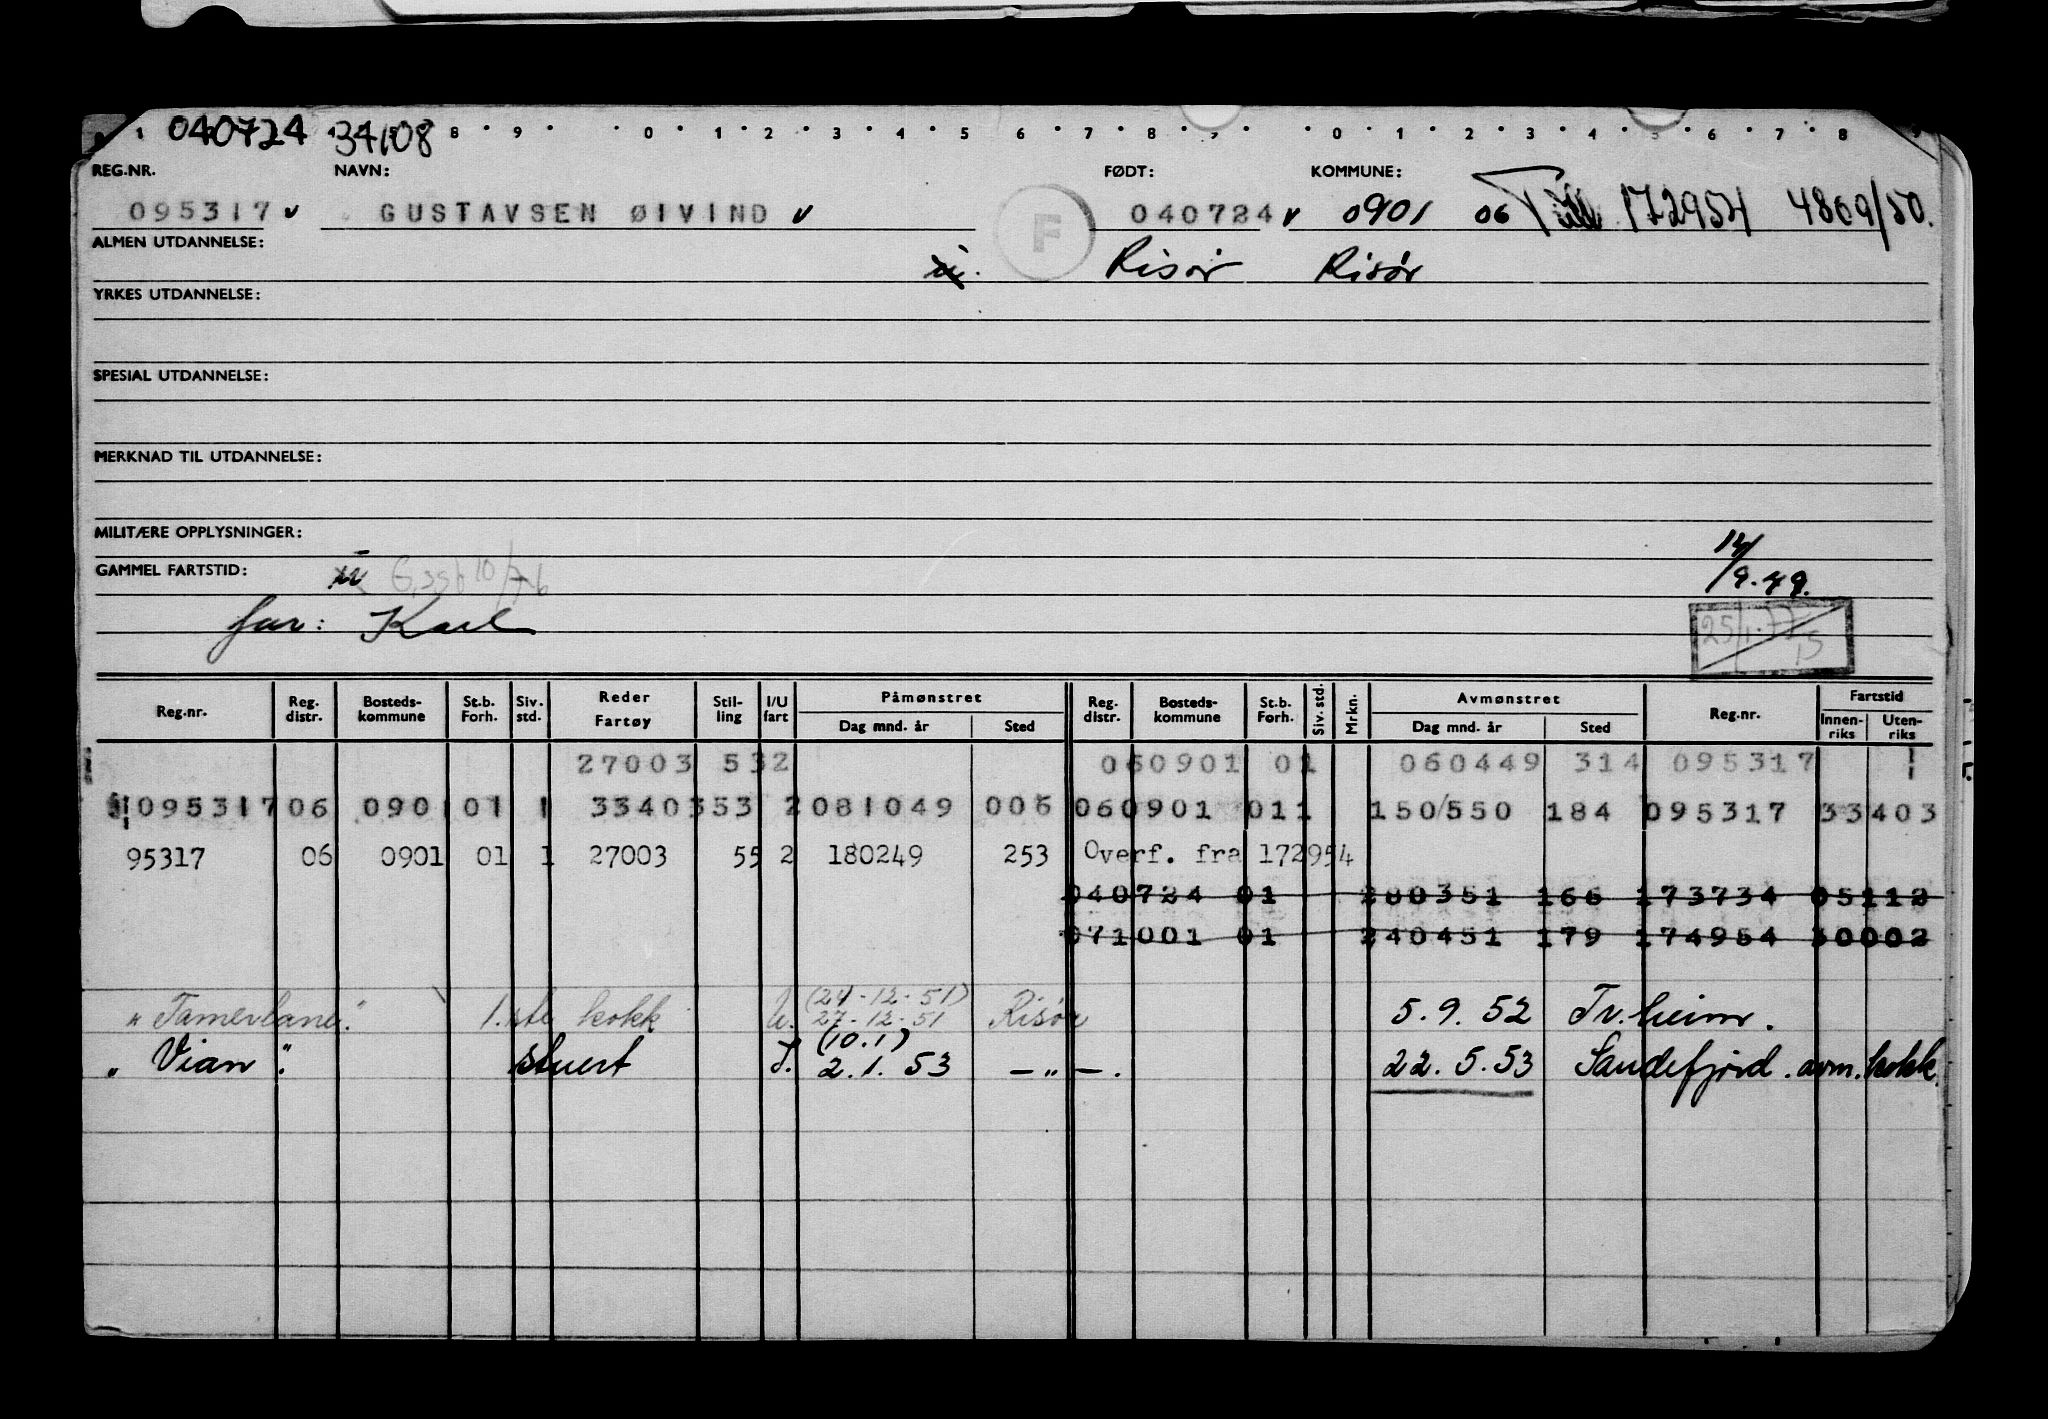 040724 34108
8 9 0 1 2 3 4 5 6 7 8 9 0 1 2 3 4 5 6 7 8
REG.NR. NAVN: FØDT: KOMMUNE:
095317 v GUSTAVSEN ØIVIND v F 040724 v 0901 06 Till 172954 4869/50.
ALMEN UTDANNELSE: Risør Risør
YRKES UTDANNELSE:
SPESIAL UTDANNELSE:
MERKNAD TIL UTDANNELSE:
MILITÆRE OPPLYSNINGER:
GAMMEL FARTSTID: 9.49.
far: Karl
25/1.77
Reg.nr. Reg. distr. Bosteds-kommune St.b. Forh. Siv. std. Reder Fartøy Stil-ling I/U fart Påmønstret Dag mnd. år Sted Reg. distr. Bosteds-kommune St.b. Forh. Siv. std. Mrkn. Avmønstret Dag mnd. år Sted Reg.nr. Fartstid Innen-riks Uten-riks
27003 532 060901 01 060449 314 095317
095317 06 090 01 1 33403 53 2 081049 006 060901 011 150550 184 095317 33403
95317 06 0901 01 1 27003 55 2 180249 253 Overf. fra 172954
040724 01 280351 166 173734 05112
071001 01 240451 179 174954 30002
"Tamerlane". 1.ste kokk U. (24-12-51) 27-12-51 Risør 5.9.52 Tr.heim.
"Vian". stuert (10.1) 2.1.53 — " —. 22.5.53 Sandefjord. avm. kokk.